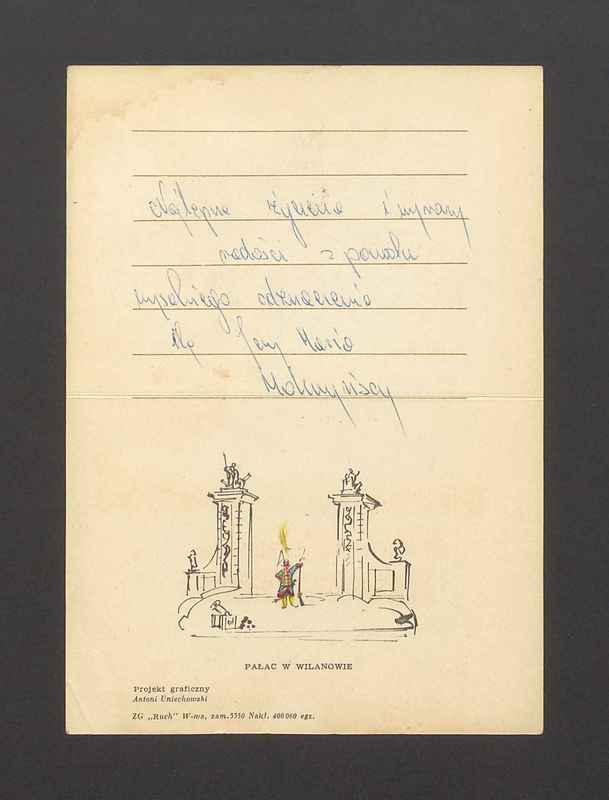 Najlepsze życzenia i wyrazy
radości z powodu
wspólnego odznaczenia
Jerzy Maria
PAŁAC W WILANOWIE
Projekt graficzny
Antoni Uniechowski
ZG „Ruch" W-wa, zam. 5550 Nakł. 400 000 egz.